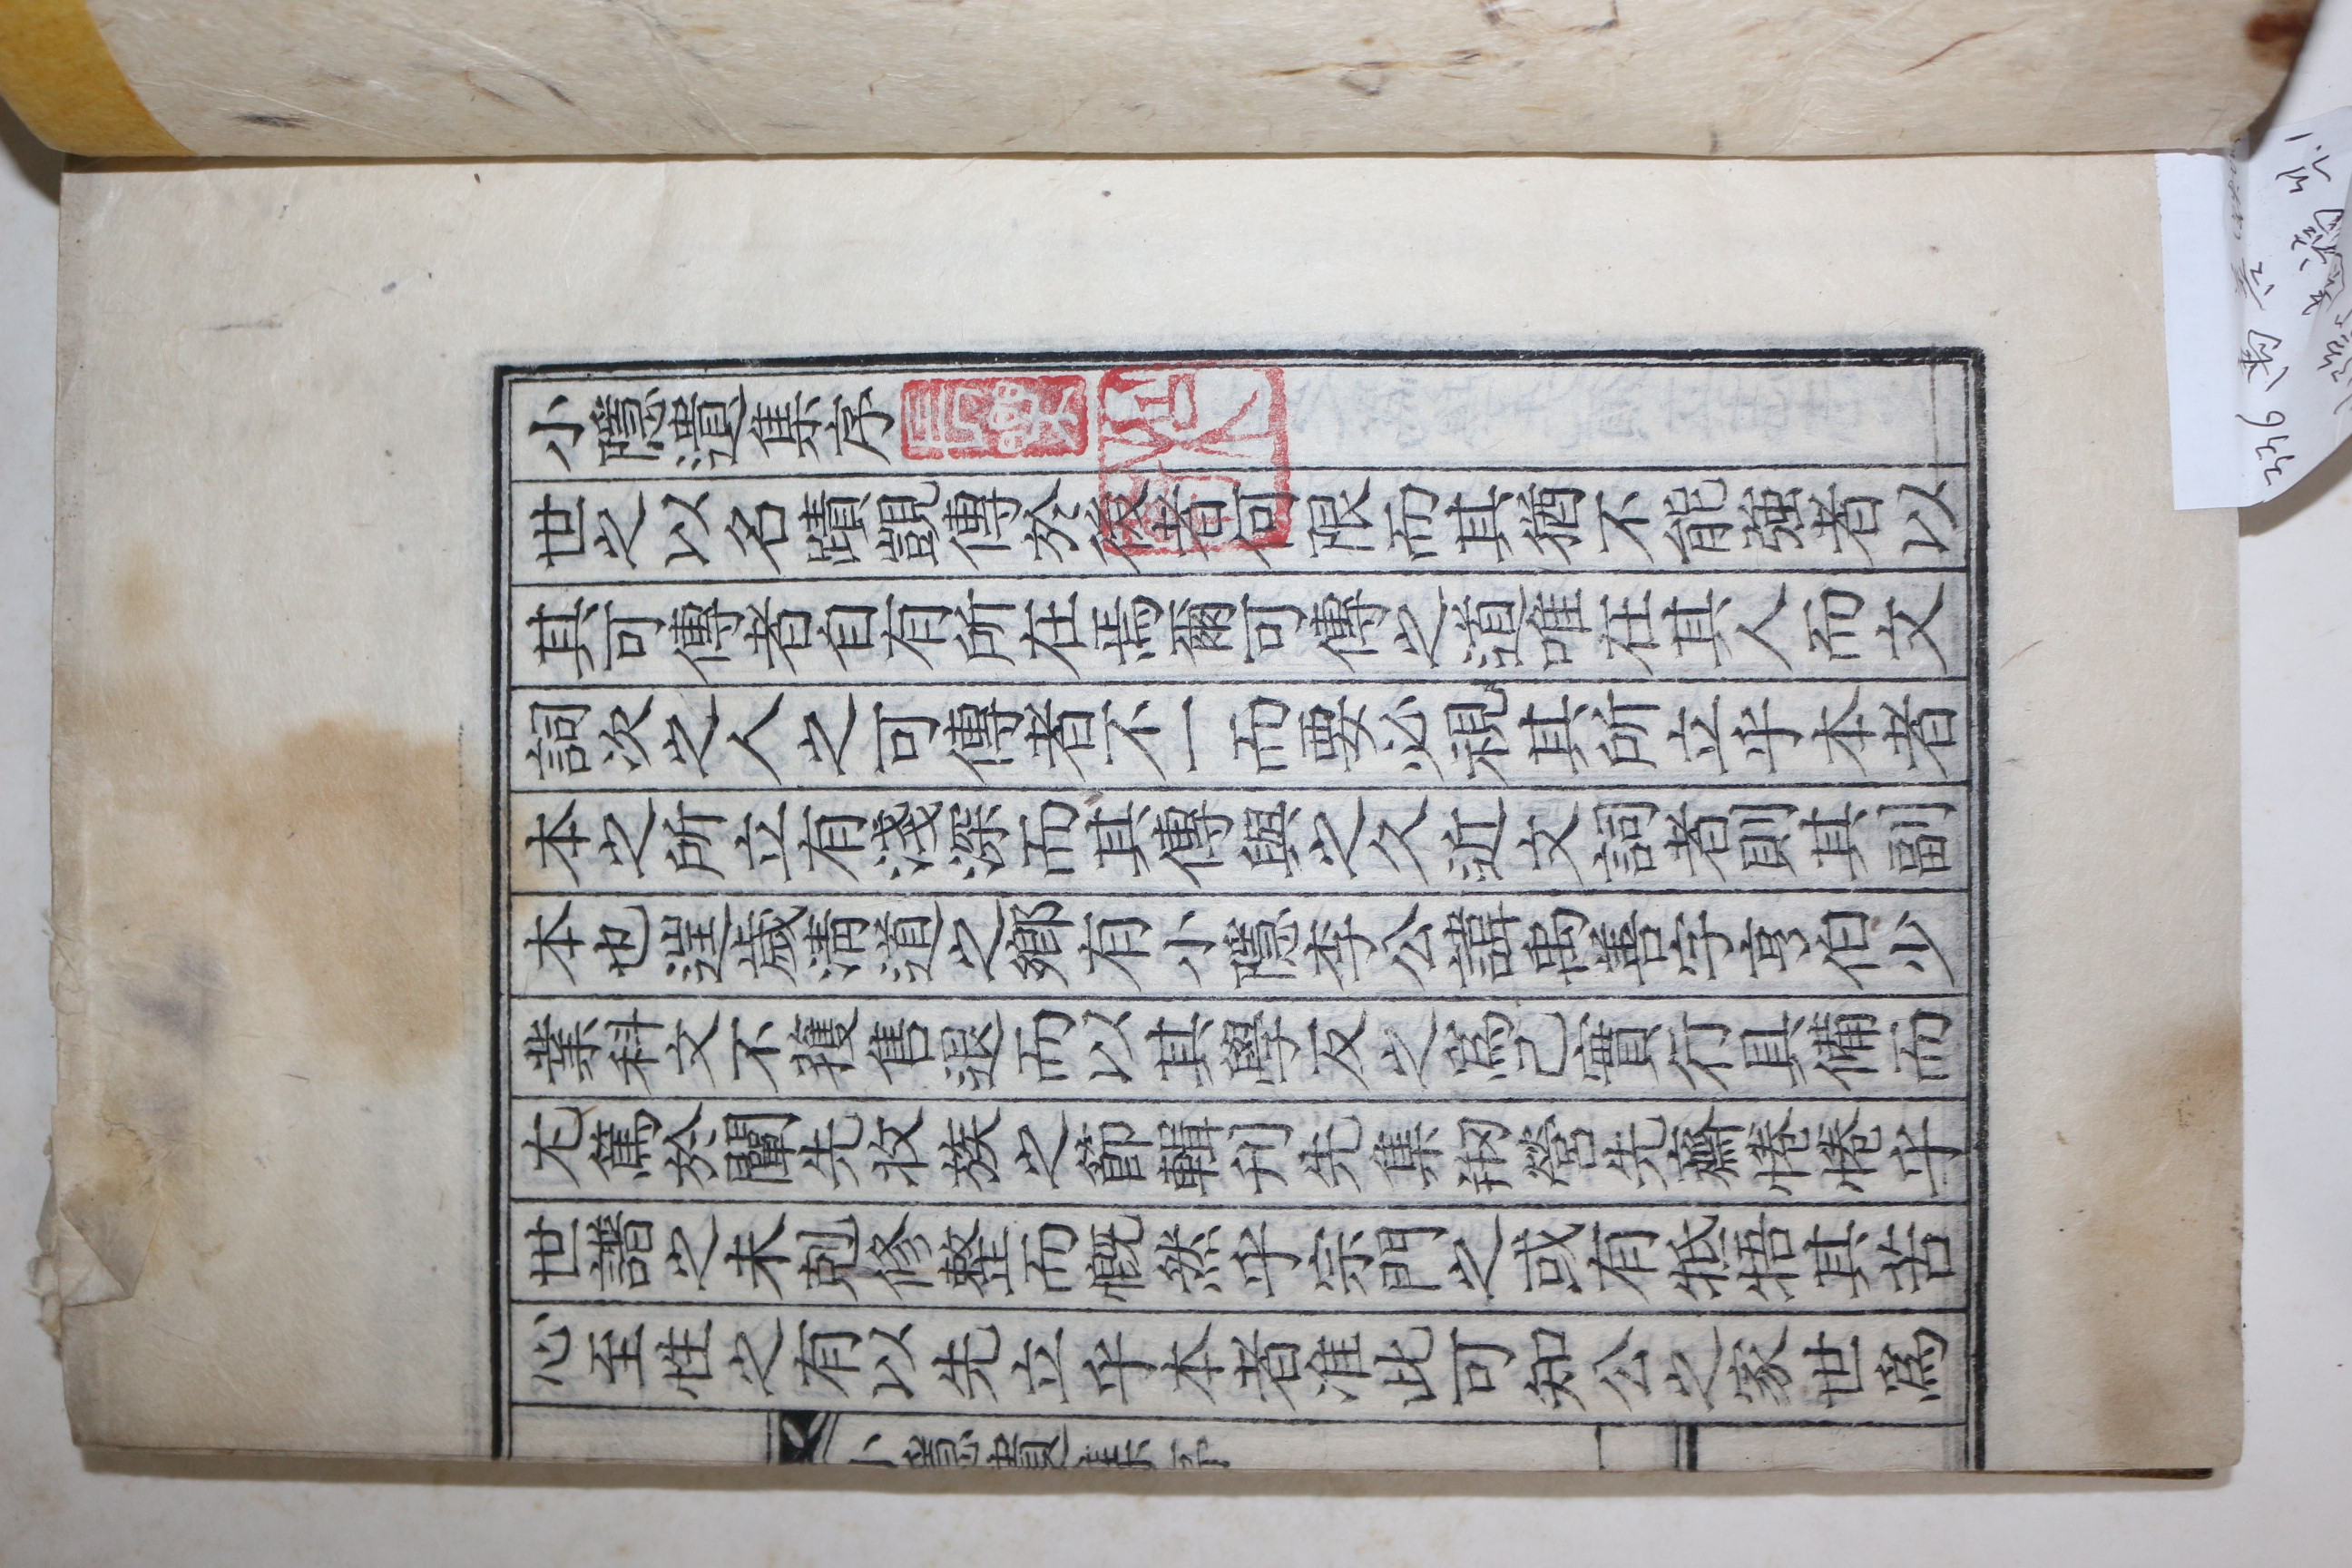 小隱遺集序
世之以名蹟覬傳於後者何限而其猶不能強者以
其可傳者自有所在焉爾可傳之道唯在其人而文
詞次之人之可傳者不一而要必視其所立乎本者
本之所立有淺深而其傳與之久近文詞者則其副
本也逞歲淸道之鄕有小隱李公諱禹善字亨伯少
業科文不獲售退而以其學反之爲己實行具備而
尤篤於闡先收族之節輯刊先集刱營先齋惓惓乎
世譜之未剋修整而慨然乎宗門之或有牴牾其苦
心至性之有以先立乎本者准此可知公之家世爲
小隱遺集序
一
長樂
336 禹善
遺稿